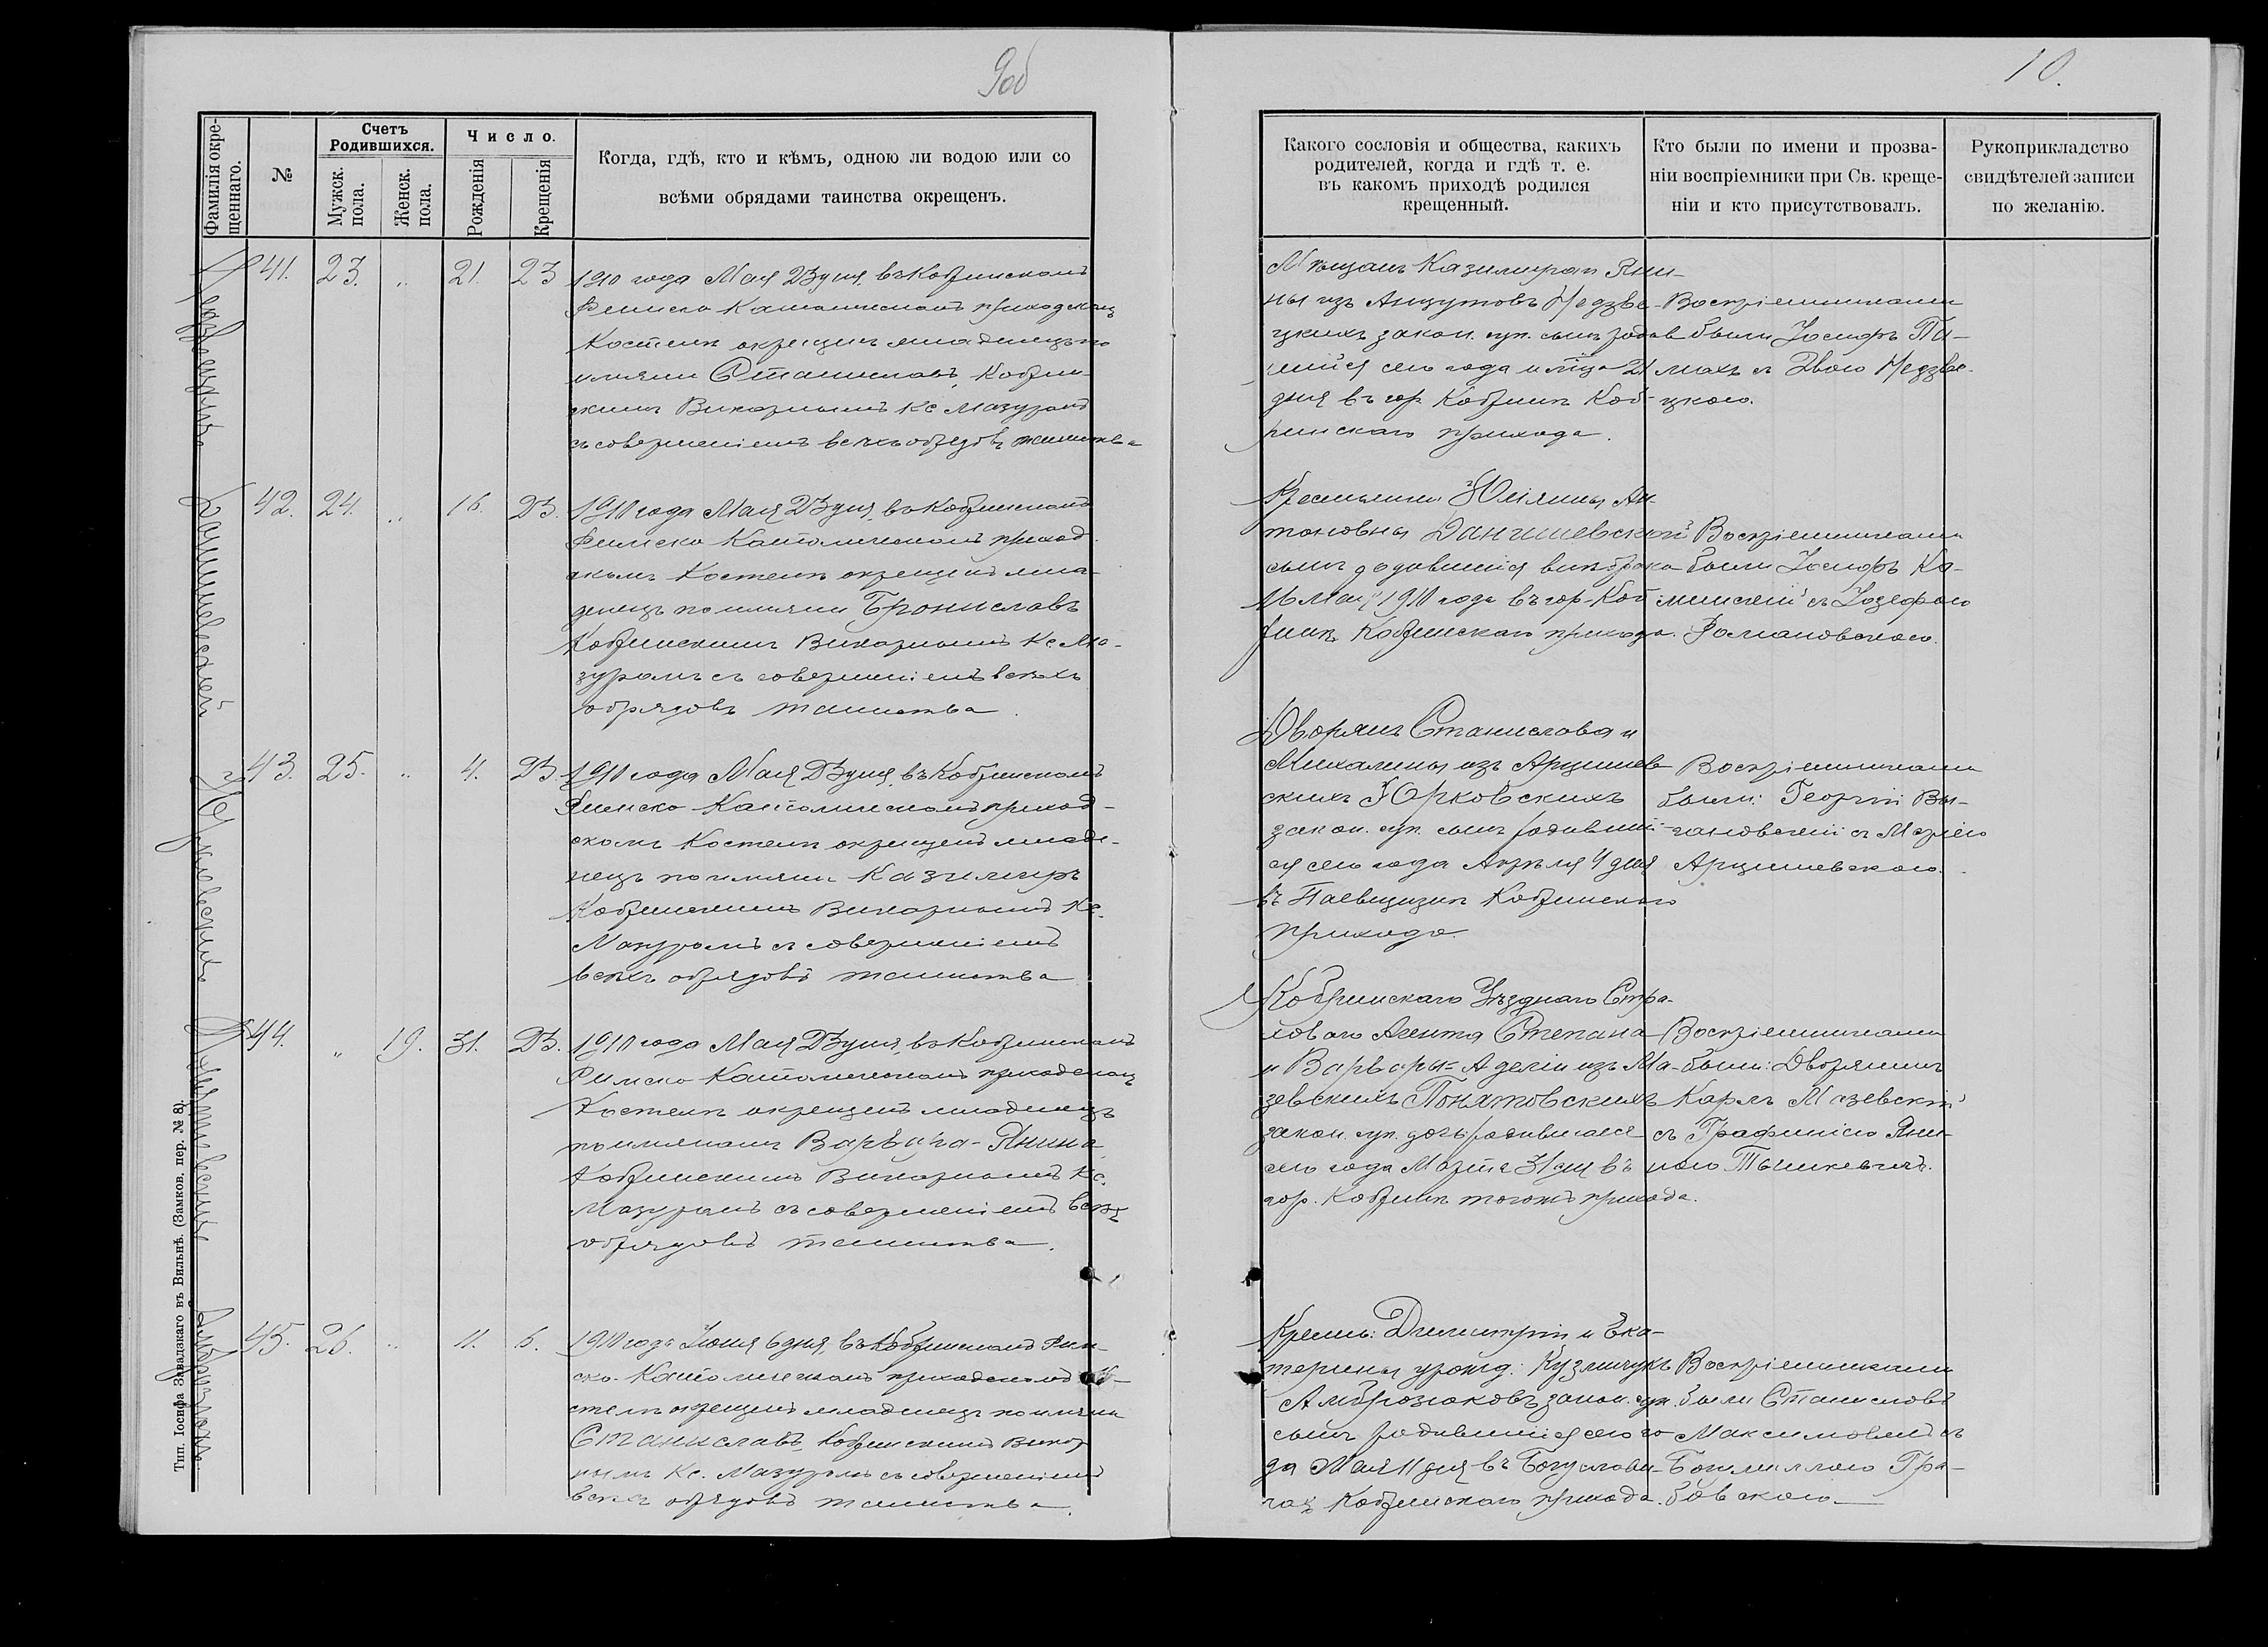 9об
Фамилія окре-
щеннаго.
№
Счетъ
Родившихся.
Мужск.
пола.
Женск.
пола.
Число.
Рожденія
Крещенія
Когда, гдѣ, кто и кѣмъ, одною ли водою или со
всѣми обрядами таинства окрещенъ.
41. 23. „ 21. 23
1910 года Мая 23 дня, въ Кобринскомъ
Римско Католическомъ приходскомъ
Костелѣ окрещенъ младенецъ по
имени Станиславъ, Кобрин-
скимъ Викарнымъ Кс Мазуромъ
съ совершеніемъ всѣхъ обрядовъ таинства
42. 24. „ 16. 23.
1910 года Мая 23 дня, въ Кобринскомъ
Римско Католическомъ приход-
скомъ Костелѣ окрещенъ мла-
денецъ по имени Брониславъ
Кобринскимъ Викарнымъ Кс Ма-
зуромъ съ совершеніемъ всѣхъ
обрядовъ таинства.
43. 25. „ 4. 23.
1910 года Мая 23 дня, въ Кобринскомъ
Римско Католическомъ приход-
скомъ Костелѣ окрещенъ младе-
нецъ по имени Казимиръ
Кобринскимъ Викарнымъ Кс.
Мазуромъ съ совершеніемъ
всѣхъ обрядовъ таинства
44. „ 19. 31. 23.
1910 года Мая 23 дня, въ Кобринскомъ
Римско Католическомъ приходскомъ
Костелѣ окрещенъ младенецъ
по именамъ Варвара-Янина
Кобринскимъ Викарнымъ Кс.
Мазуромъ съ совершеніемъ всѣхъ
обрядовъ таинства.
45. 26. „ 11. 6.
1910 года Іюня 6 дня, въ Кобринскомъ Рим-
ско-Католическомъ приходскомъ Ко-
стелѣ окрещенъ младенецъ по имени
Станиславъ, Кобринскимъ Викар-
нымъ Кс. Мазуромъ съ совершеніемъ
всѣхъ обрядовъ таинства.
Тип. Іосифа Завадзкаго въ Вильнѣ. (Замков. пер. № 8).
10.
Какого сословія и общества, какихъ
родителей, когда и гдѣ т. е.
въ какомъ приходѣ родился
крещенный.
Кто были по имени и прозва-
ніи воспріемники при Св. креще-
ніи и кто присутствовалъ.
Рукоприкладство
свидѣтелей записи
по желанію.
Мѣщанъ Казимира и Яни-
ны изъ Анцутовъ Недзвѣ-
цкихъ закон. суп. сынъ родив
шійся сего года и мца 21
дня въ гор. Кобринѣ Коб-
ринскаго прихода.
Воспріемниками
были Іосифъ Па-
лкою.
Крестьянки Юліянны Ан-
тоновны Данишевской
сынъ родившійся внѣ брака
16 Мая 1910 года въ гор. Коб
ринѣ Кобринскаго прихода.
Воспріемниками
были Іосифъ Ка-
минскій съ Іозефою
Романовскою.
Дворянъ Станислава и
Михалины изъ Арцишев
скихъ Юрковскихъ
закон. суп. сынъ родившій-
ся сего года Апрѣля 4 дня
въ Кобринскаго
прихода.
Воспріемниками
были: Георгій Вы-
гановскій съ Маріею
Арцишевскою.
Кобринскаго Уѣзднаго Стра-
хового Агента Степана
и Варвары-Аделіи изъ Ма-
зевскихъ Понятовскихъ
закон. суп. дочь родившаяся
сего года Марта 31 дня въ
гор. Кобринѣ тогожъ прихода.
Воспріемниками
были: Дворянинъ
Карлъ Мазевскій
съ Графинею Яни-
ною Тышкевичъ.
Крестьянъ: Димитрія и Ека-
терины урожд: Кузмичукъ
Амброзюковъ закон. суп.
сынъ родившійся сего го
да Мая 11 дня въ Богуслави-
чахъ Кобринскаго прихода.
Воспріемниками
были Станиславъ
Максимовичъ съ
Богумиллою Гра-
бовскою.